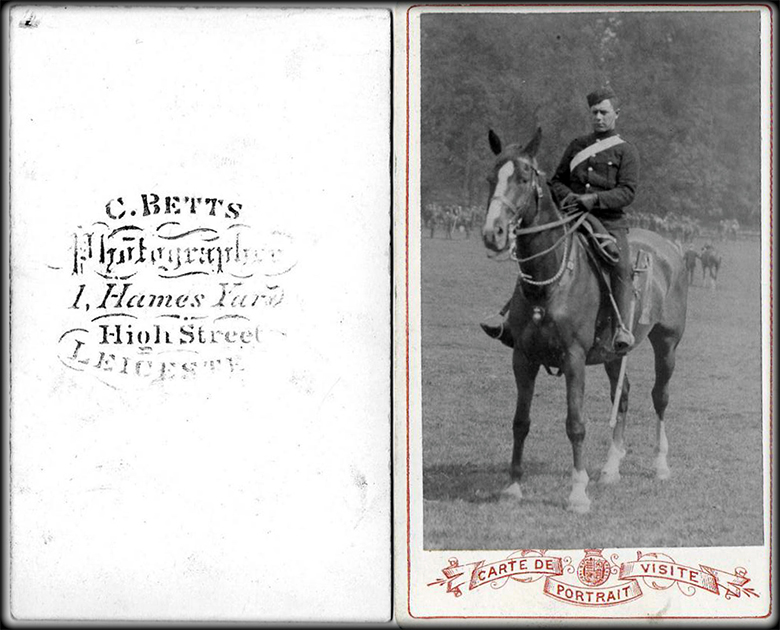 C. BETTS
Photographer
1, Hames Yard
High Street
LEICESTE
CARTE DE VISITE
PORTRAIT